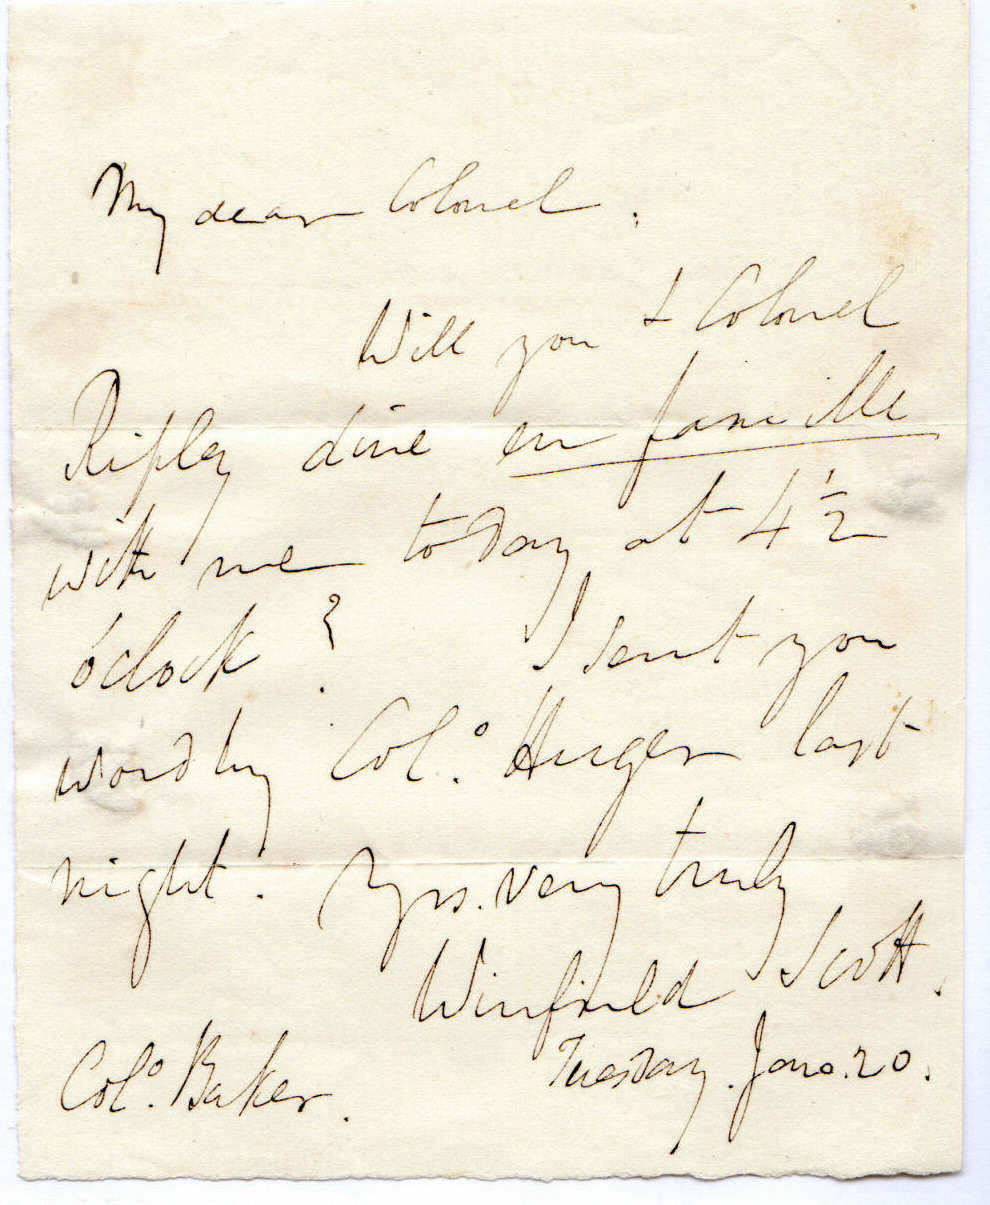 My dear Colonel.
Will you & Colonel
Ripley dine en famille
with me today at 4 1/2
o'clock? I sent you
word by Colº. Huger last
night. Yrs. very truly
Winfield Scott.
Colº. Baker.
Tuesday. Jano. 20.